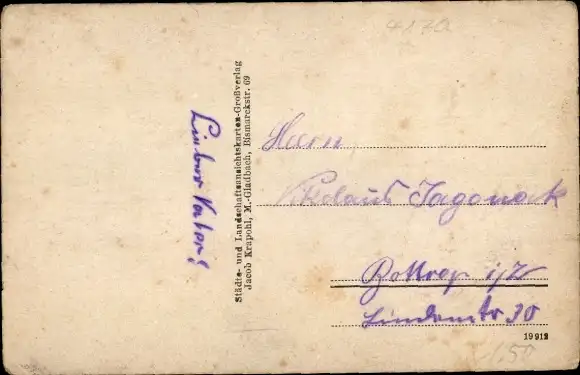 Lieber Vater!
Städte- und Landschaftenansichtskarten-Großverlag
Jacob Krapohl, M.-Gladbach, Bismarckstr. 69
Herrn
Nikolaus
Bottrop i/W
Lindenstr 30
19912